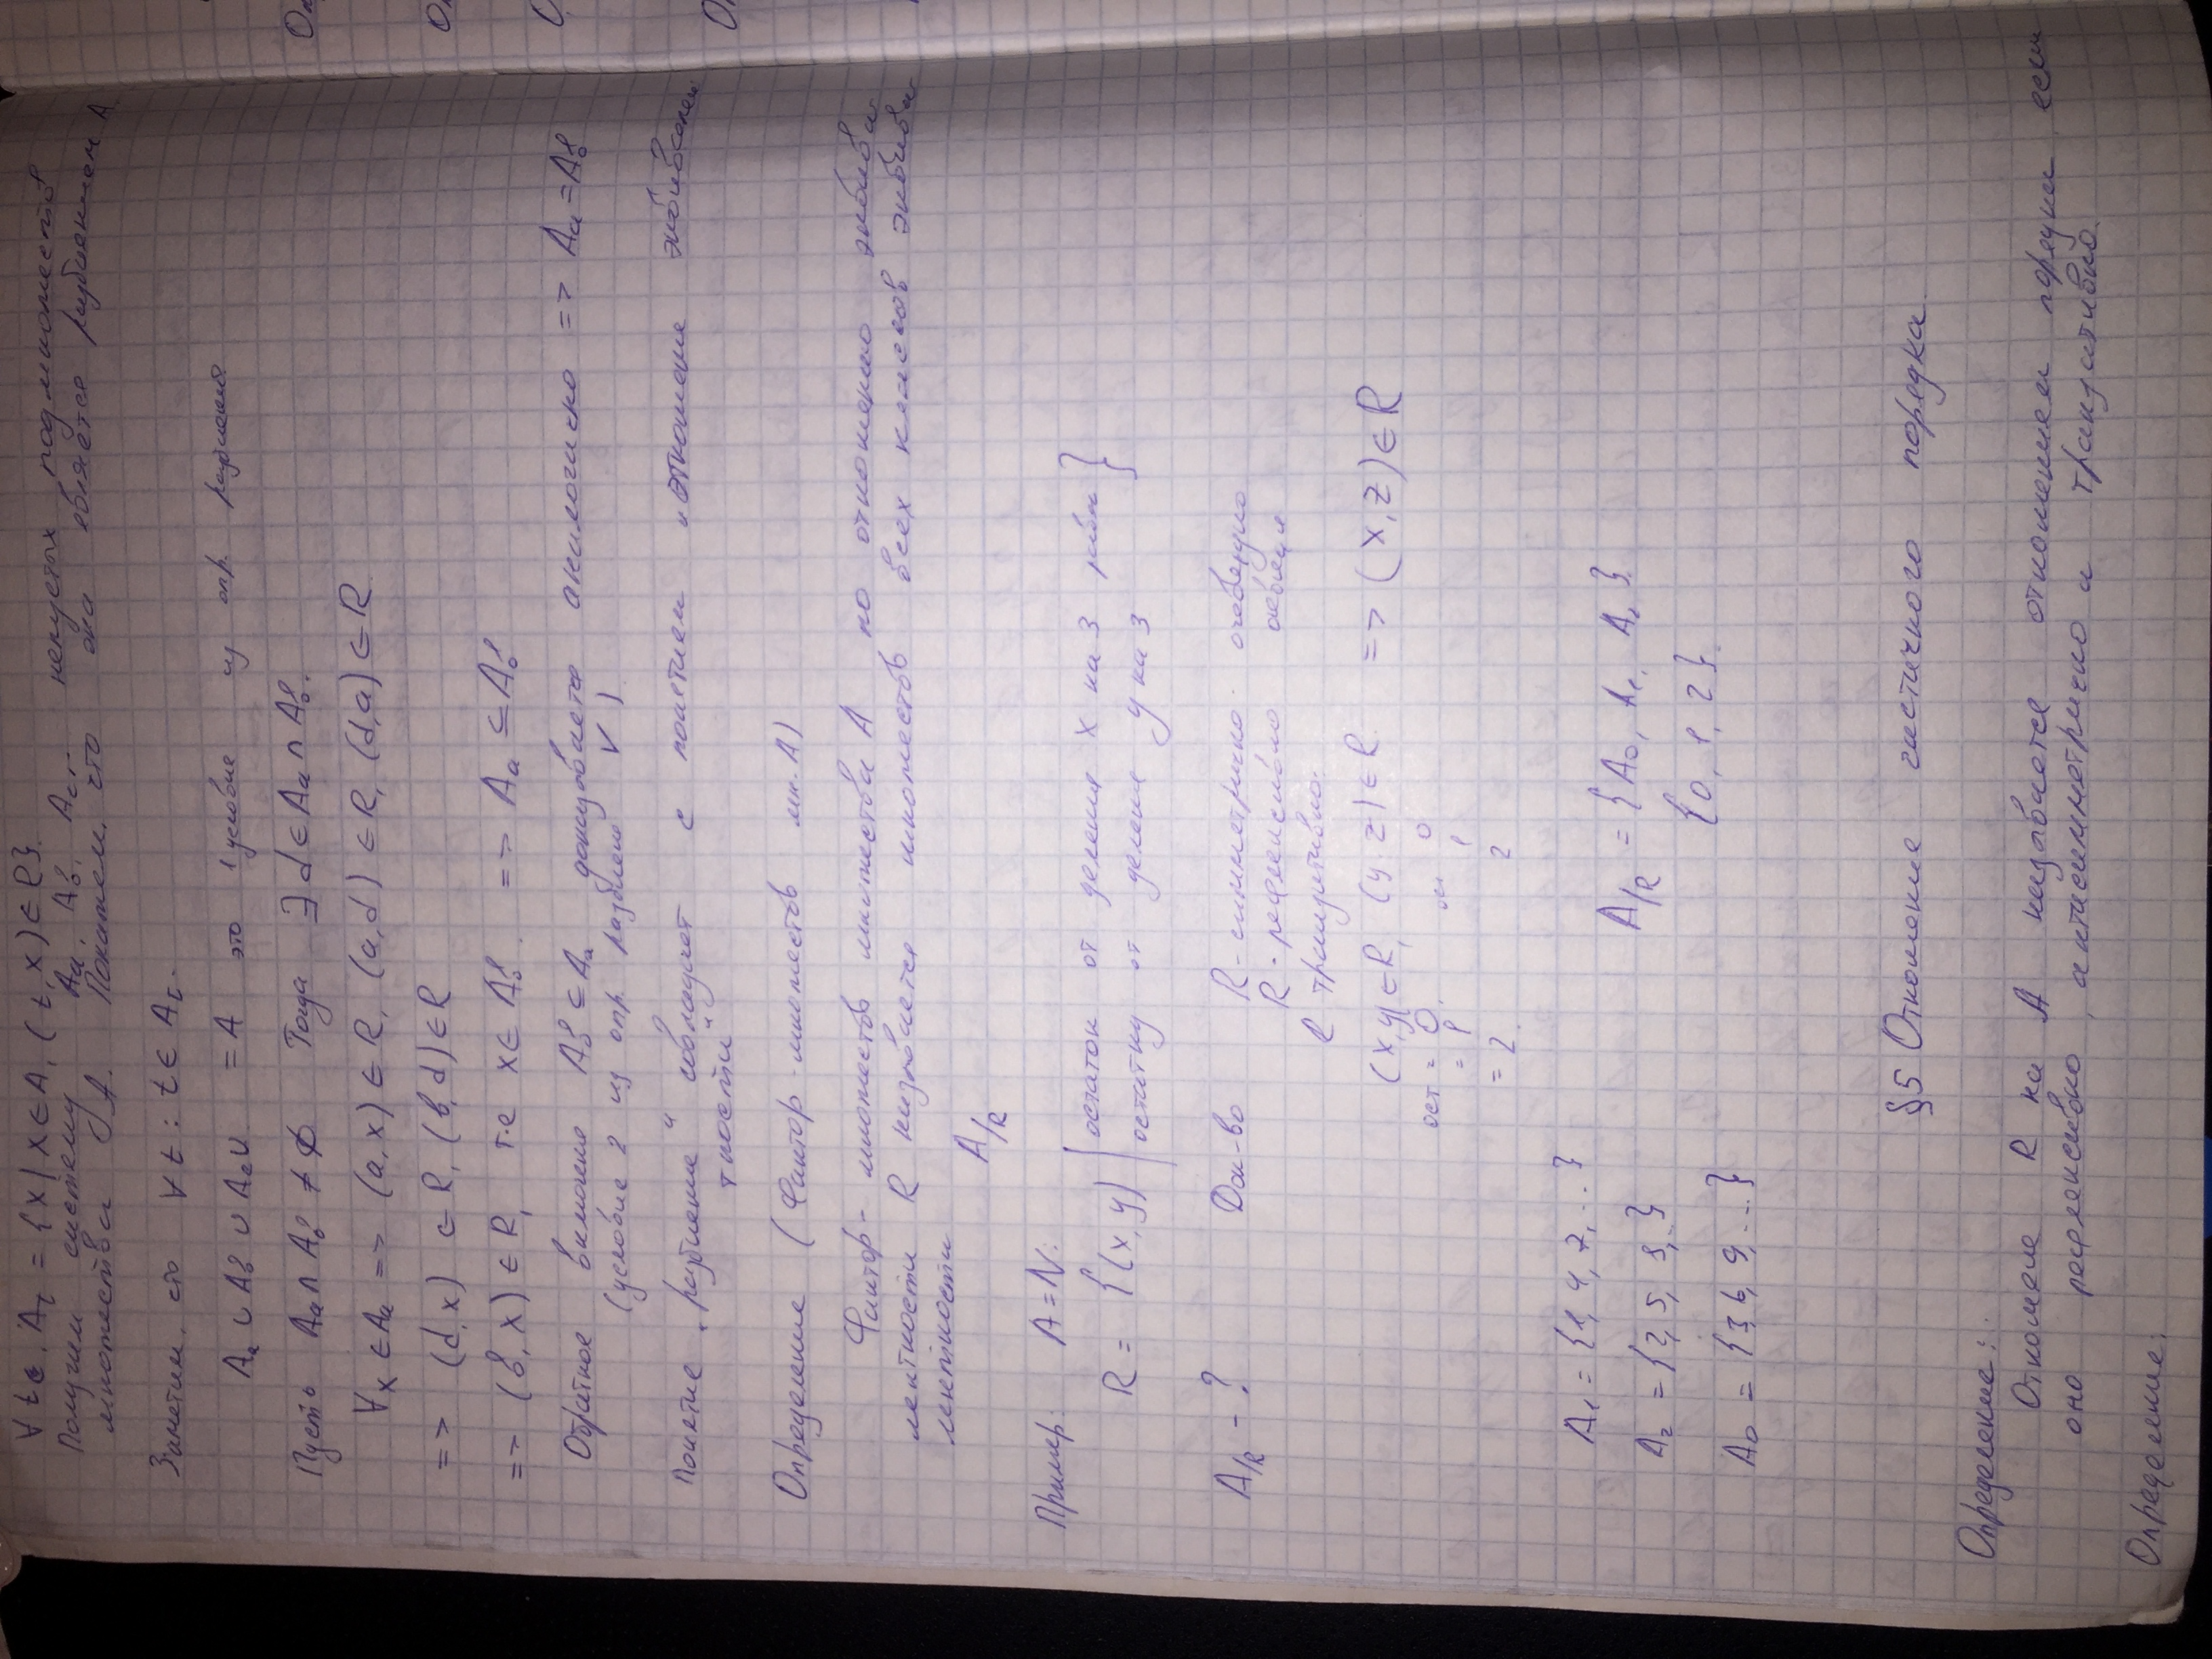 ∀ t ∈ . A_t = {x | x ∈ A, (t, x) ∈ R}.
Получим систему A_a, A_b, A_c, .. непустых подмножеств
множества A. Покажем, что она является разбиением A.
Заметим, что ∀ t : t ∈ A_t.
A_a ∪ A_b ∪ A_c ∪ = A это 1 условие из опр. разбиения.
Пусть A_a ∩ A_b ≠ ∅ Тогда ∃ d ∈ A_a ∩ A_b.
∀x ∈ A_a => (a, x) ∈ R, (a, d) ∈ R, (d, a) ∈ R.
=> (d, x) ∈ R, (b, d) ∈ R
=> (b, x) ∈ R, т.е x ∈ A_b. => A_a ⊆ A_b
Обратное включение A_b ⊆ A_a доказывается аналогично => A_a = A_b
(условие 2 из опр. разбиене V)
Понятие „разбиение“ совпадает с понятием „отношение эквивален
тности“
Определение (Фактор-множество мн. A)
Фактор-множество множества A по отношению эквива-
лентности R называется множество всех классов эквива-
лентности
A/R
Пример: A = N.
R = {(x, y) | остаток от деления x на 3 равен
остатку от деления y на 3}
A/R - ? Док-во R - симметрично - очевидно
R - рефлексивно
R транзитивно.
(x, y) ∈ R, (y, z) ∈ R. => (x, z) ∈ R
ост = 0. ост 0
= 1 1
= 2. 2
A_1 = {1, 4, 7, ...}
A/R = {A_0, A_1, A_2}.
A_2 = {2, 5, 8, ..}
{0, 1, 2}.
A_0 = {3, 6, 9, ...}
§5 Отношение частичного порядка.
Определение:
Отношене R на A называется отношением порядка, если
оно рефлексивно, антисимметрично и транзитивно.
Определение: